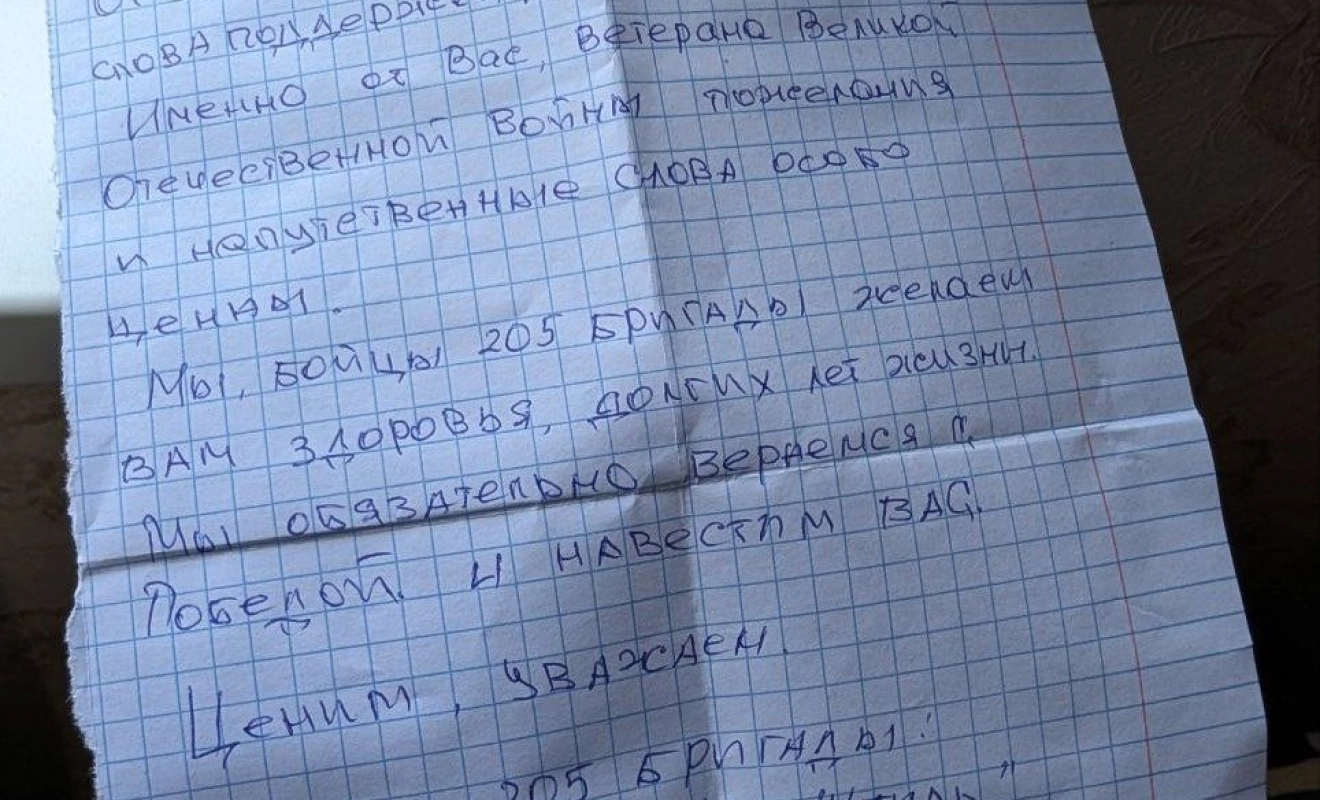 слова поддержк
Именно от Вас, Ветерана Великой
Отечественной Войны пожелания
и напутственные слова особо
ценны.
Мы, бойцы 205 бригады желаем
вам здоровья, долгих лет жизни.
Мы обязательно вернемся с
Победой и навестим вас.
Ценим, уважаем.
205 бригады: